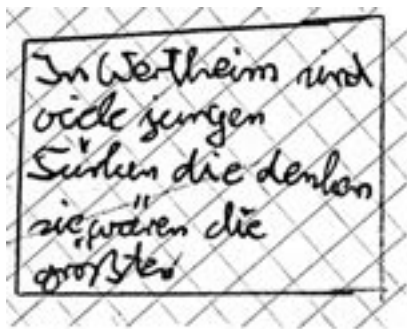 In Wertheim sind
viele jungen
Türken die denken
sie wären die
größten